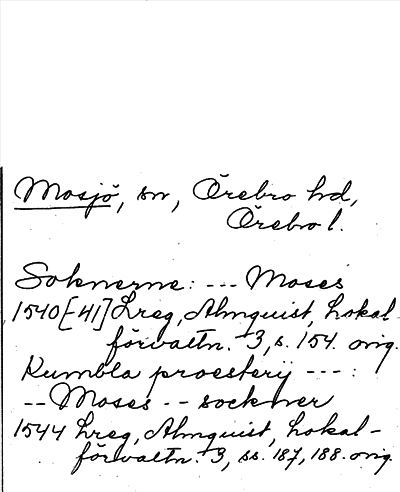 Mosjö, sn, Örebro hd,
Örebro l.
Soknerne: --- Moses
1540[41] Lreg, Almquist, Lokal-
förvaltn. 3, s. 154. orig.
Kumbla proesterij ---:
-- Moses -- sockner
1544 Lreg, Almquist, Lokal-
förvaltn. 3, ss. 187, 188. orig.